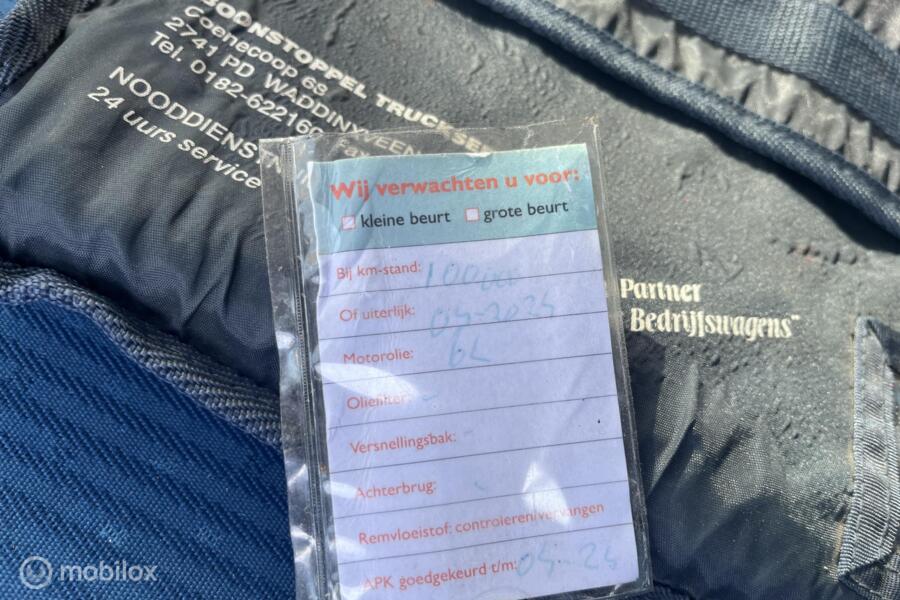 BOONSTOPPEL TRUCKSE
Coenecoop 68
2741 PD WADDINXVEEN
Tel. 0182-622160
Fax
NOODDIENST
24 uurs service
Wij verwachten u voor:
kleine beurt grote beurt
Bij km-stand: 100000
Of uiterlijk: 04-2024
Motorolie: 6L
Oliefilter: -
Versnellingsbak: -
Achterbrug: -
Remvloeistof: controleren/vervangen
APK goedgekeurd t/m: 04-24
Partner
Bedrijfswagens
mobilox